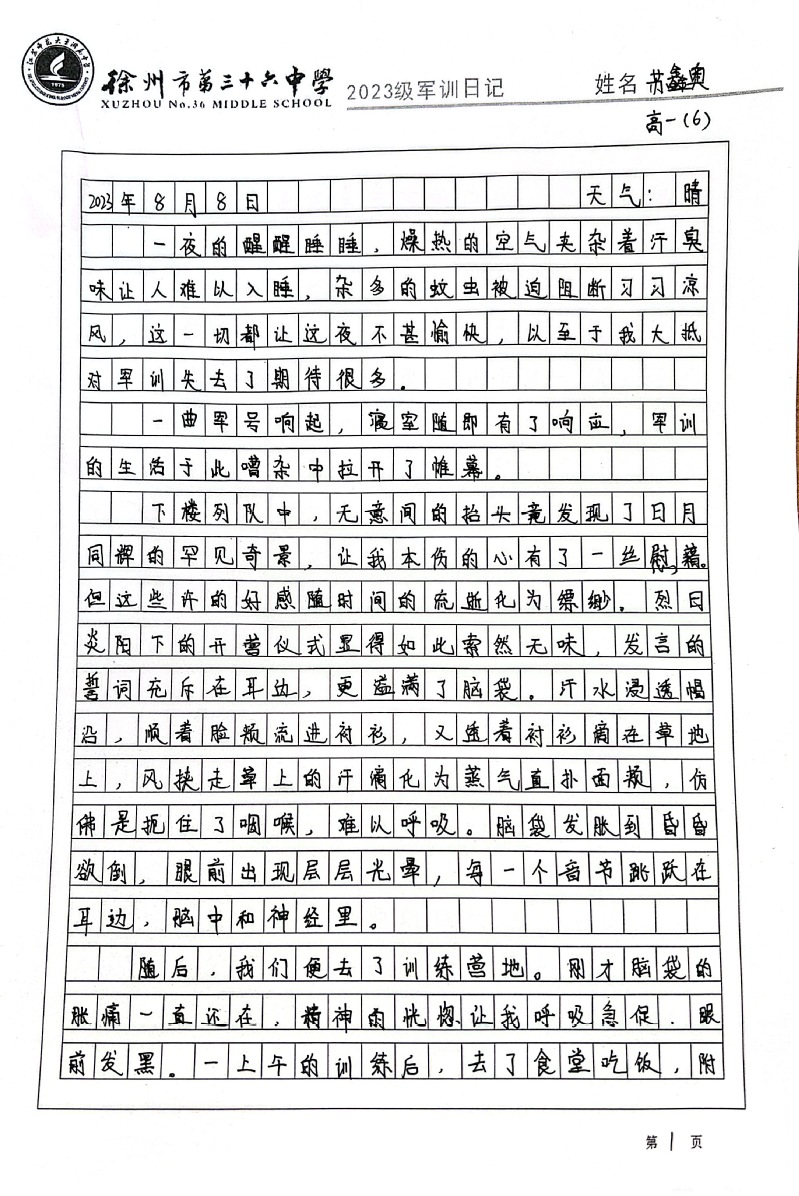 徐州市第三十六中学
XUZHOU No.36 MIDDLE SCHOOL
2023级军训日记
姓名 苏鑫奥
高一(6)
2023年8月8日 天气：晴
一夜的醒醒睡睡，燥热的空气夹杂着汗臭
味让人难以入睡，杂多的蚊虫被迫阻断习习凉
风，这一切都让这夜不甚愉快，以至于我大抵
对军训失去了期待很多。
一曲军号响起，寝室随即有了响应，军训
的生活于此嘈杂中拉开了帷幕。
下楼列队中，无意间的抬头竟发现了日月
同辉的罕见奇景，让我本伤的心有了一丝慰藉。
但这些许的好感随时间的流逝化为缥缈。烈日
炎阳下的开营仪式显得如此索然无味，发言的
誓词充斥在耳边，更溢满了脑袋。汗水浸透帽
沿，顺着脸颊流进衬衫，又透着衬衫滴在草地
上，风挟走草上的汗滴化为蒸气直扑面颊，仿
佛是扼住了咽喉，难以呼吸。脑袋发胀到昏昏
欲倒，眼前出现层层光晕，每一个音节跳跃在
耳边，脑中和神经里。
随后，我们便去了训练营地。刚才脑袋的
胀痛一直还在，精神的恍惚让我呼吸急促.眼
前发黑。一上午的训练后，去了食堂吃饭，附
第1页